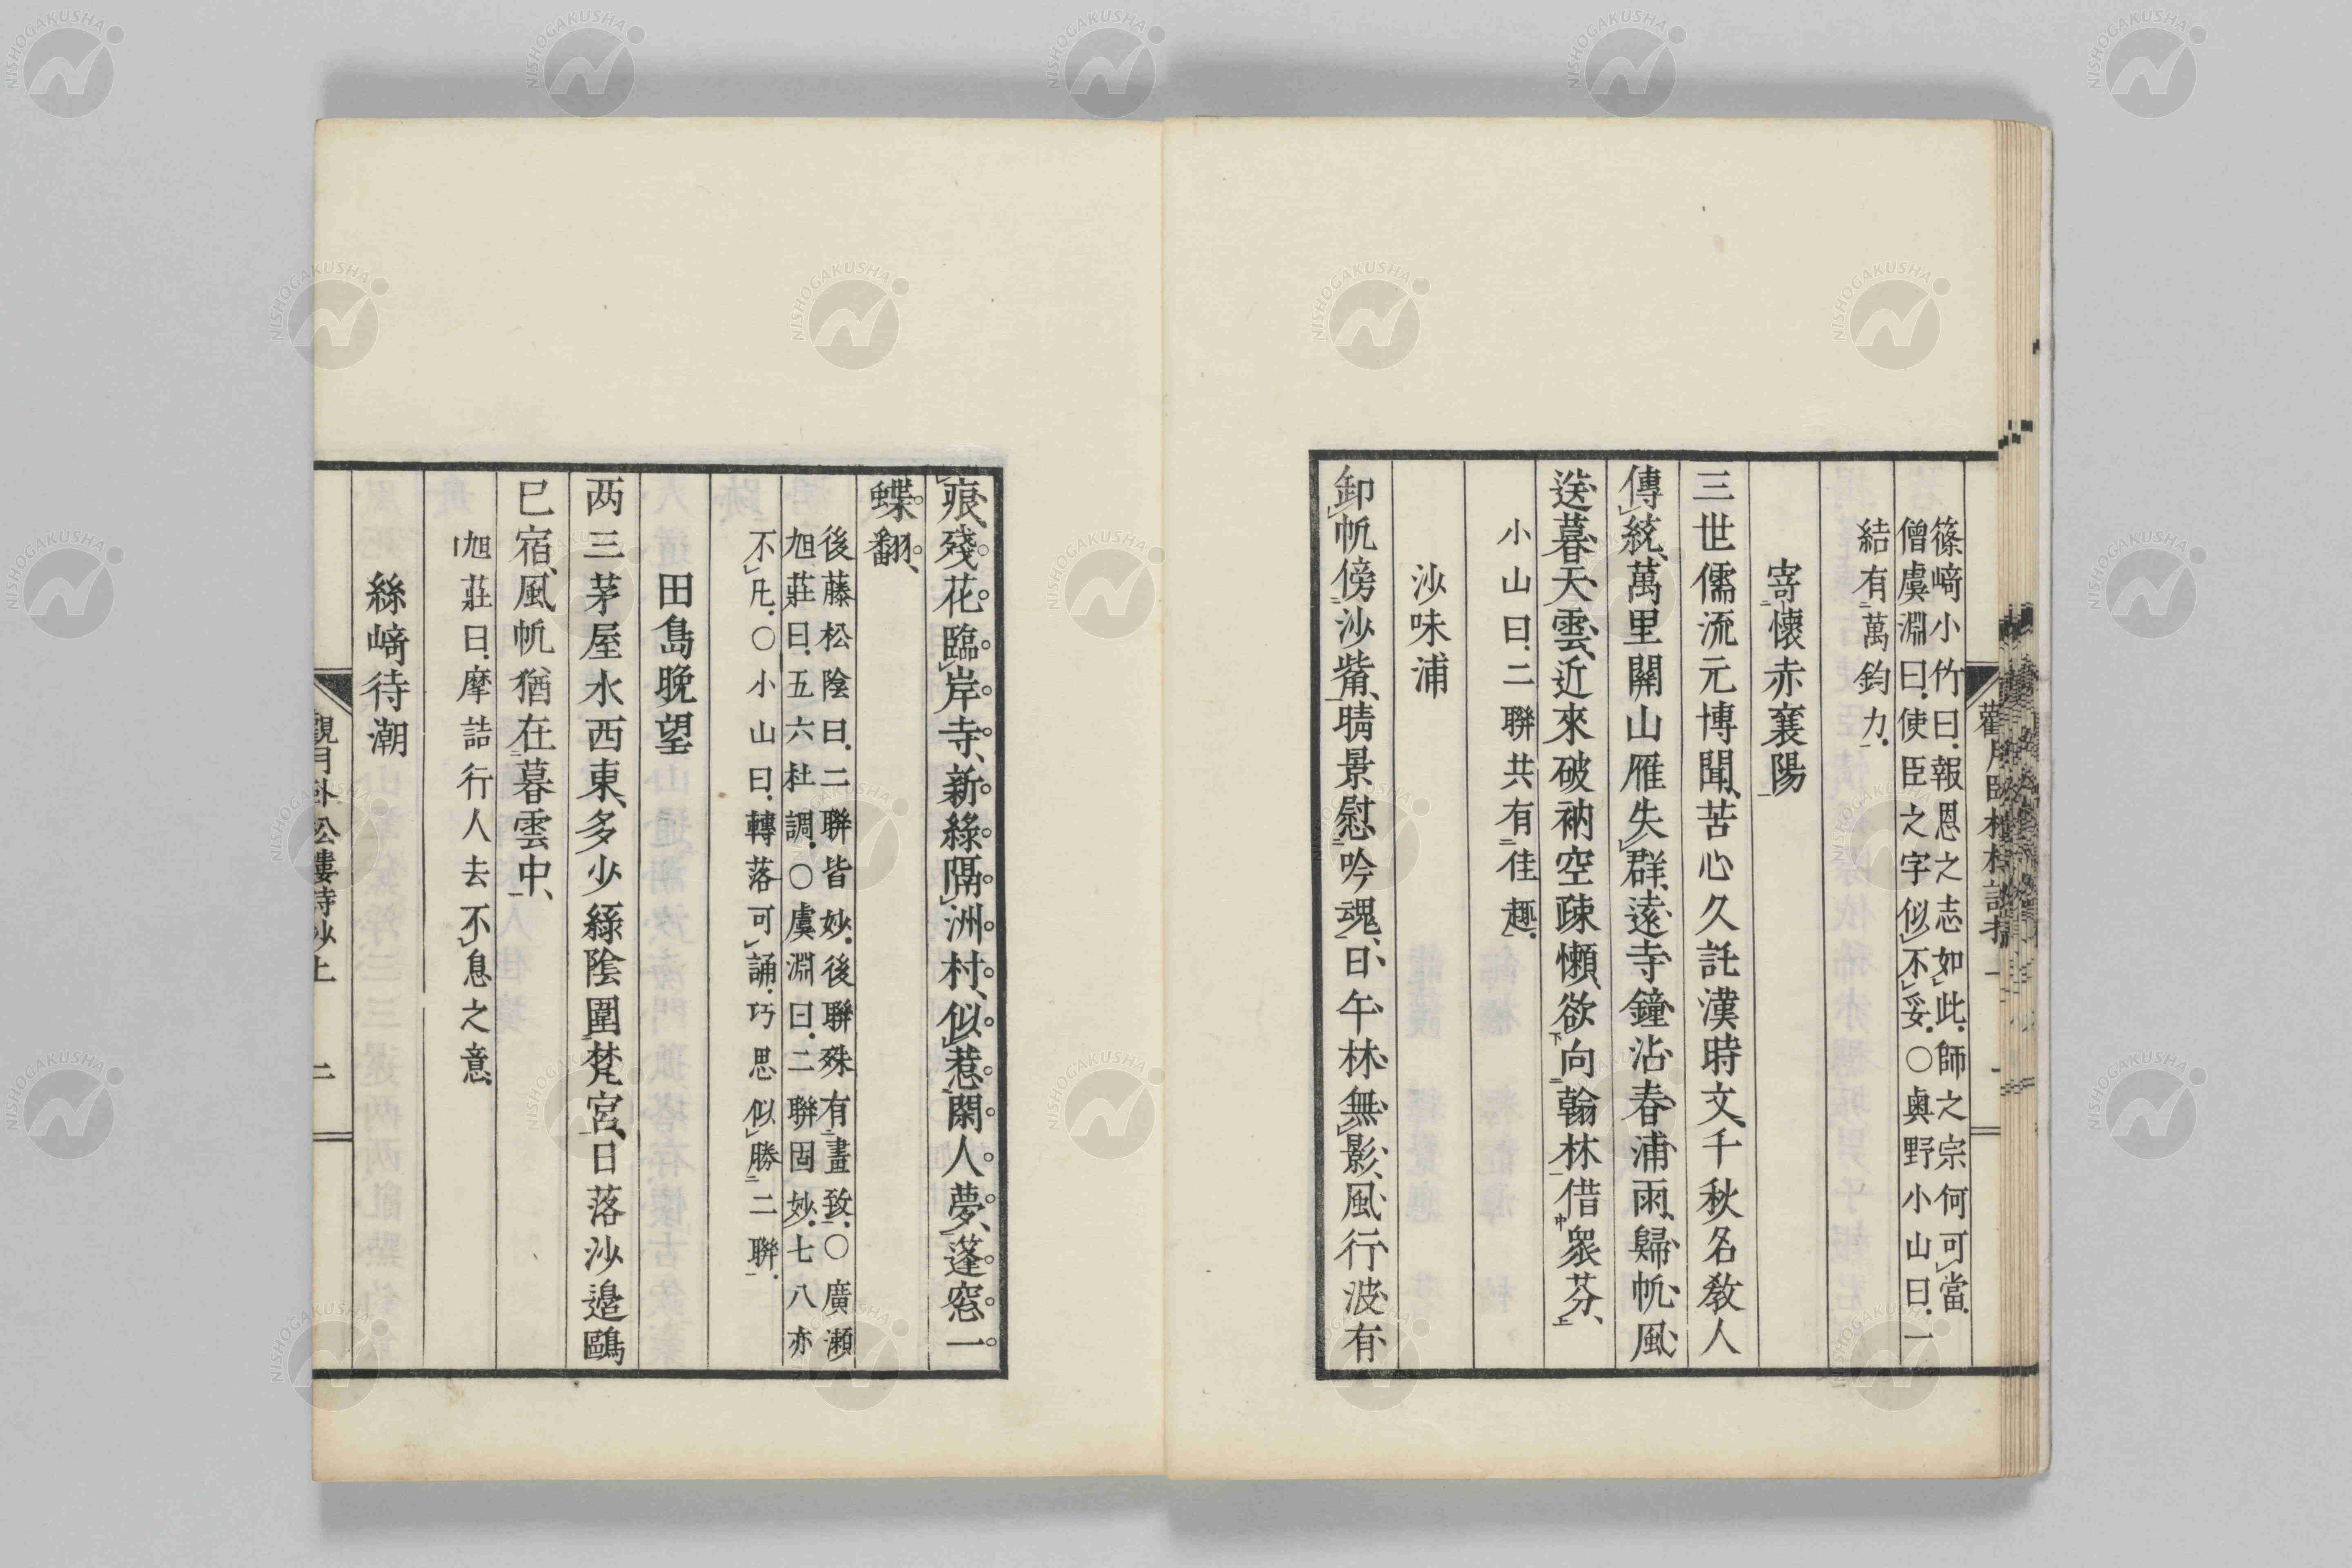 篠﨑小竹曰.報恩之志如此.師之宗何可當.
僧虞淵曰.使臣之字似不妥.○奥野小山曰.一
結有萬鈞力.
寄懷赤襄陽
三世儒流元博聞、苦心久託漢時文、千秋名教人
傳統、萬里關山雁失群、遠寺鐘沾春浦雨、歸帆風
送暮天雲、近來破衲空疎懶、欲向翰林借衆芬、
小山曰.二聯共有佳趣.
沙味浦
卸帆傍沙觜、晴景慰吟魂、日午林無影、風行波有
痕、殘花臨岸寺、新綠隔洲村、似惹閑人夢、蓬窓一
蝶翻、
後藤松陰曰.二聯皆妙.後聯殊有畫致.○廣瀨
旭莊曰.五六杜調.○虞淵曰.二聯固妙.七八亦
不凡.○小山曰.轉落可誦.巧思似勝二聯.
田島晚望
两三茅屋水西東、多少綠陰圍梵宮、日落沙邉鷗
巳宿、風帆猶在暮雲中、
旭莊曰.摩詰行人去不息之意
絲﨑待潮
觀月臥松樓詩鈔上 二
NISHOGAKUSHA